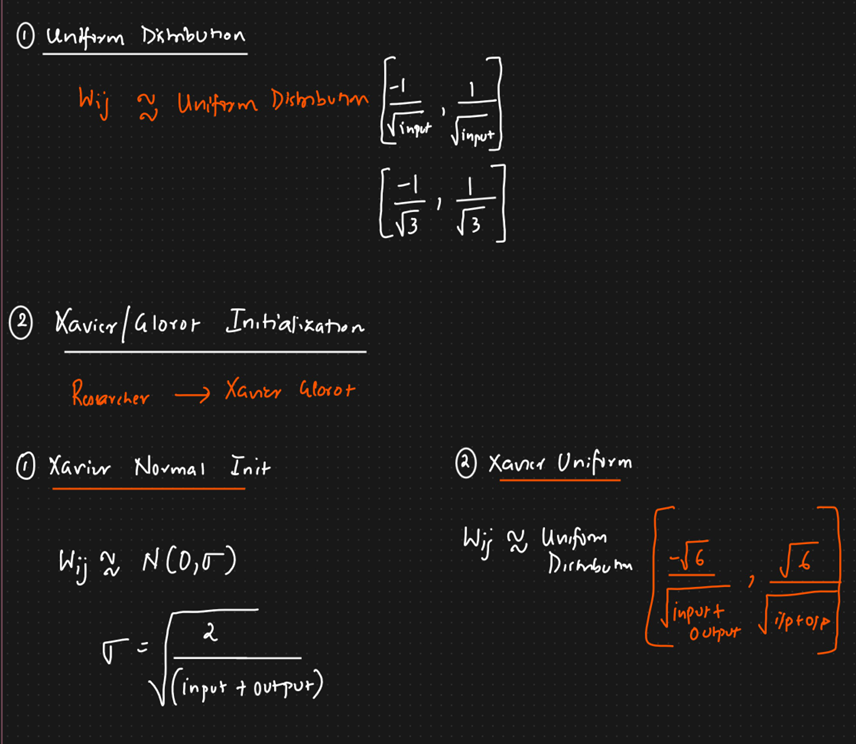 ① Uniform Distribution
Wij ≈ Uniform Distribution [-1/√input, 1/√input]
[-1/√3, 1/√3]
② Xavier/Glorot Initialization
Researcher → Xavier Glorot
① Xavier Normal Init
Wij ≈ N(0,σ)
σ = √(2/(input + output))
② Xavier Uniform
Wij ≈ Uniform
Distribution [-√6/√input + output, √6/√i/p+o/p]